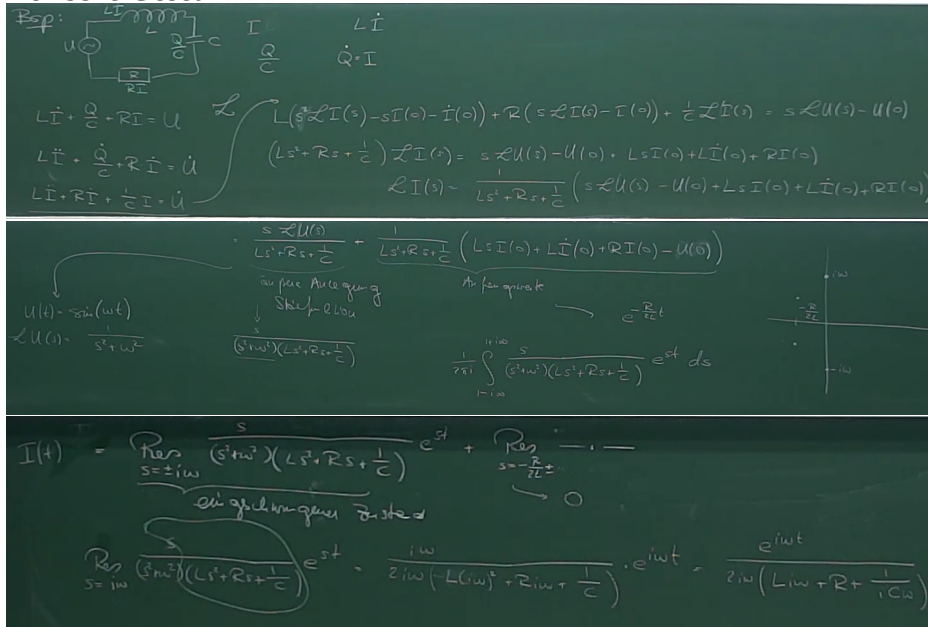 Bsp:
LI
L
U
Q/C
C
R
RI
I
Lİ
Q/C
Q̇ = I
Lİ + Q/C + RI = U
ℒ
L(s²ℒI(s) - sI(0) - İ(0)) + R(sℒI(s) - I(0)) + 1/C ℒI(s) = sℒU(s) - U(0)
LÏ + Q̇/C + Rİ = U̇
(Ls² + Rs + 1/C) ℒI(s) = sℒU(s) - U(0) + LsI(0) + Lİ(0) + RI(0)
LÏ + Rİ + 1/C I = U̇
ℒI(s) = 1/(Ls² + Rs + 1/C) (sℒU(s) - U(0) + LsI(0) + Lİ(0) + RI(0))
= sℒU(s)/(Ls² + Rs + 1/C) + 1/(Ls² + Rs + 1/C) (LsI(0) + Lİ(0) + RI(0) - U(0))
äußere Anregung
Anfangswerte
U(t) = sin(ωt)
e^{-R/2L t}
ℒU(s) = 1/(s² + ω²)
s/((s²+ω²)(Ls²+Rs+1/C))
1/2πi ∫_{1-i∞}^{1+i∞} s/((s²+ω²)(Ls²+Rs+1/C)) e^{st} ds
iω
-R/2L
-iω
I(t) = Res_{s=±iω} s/((s²+ω²)(Ls²+Rs+1/C)) e^{st} + Res_{s=-R/2L ± ..} — · —
→ 0
eingeschwungener Zustand
Res_{s=iω} s/((s²+ω²)(Ls²+Rs+1/C)) e^{st} = iω/(2iω(L(iω)² + Riω + 1/C)) · e^{iωt} = e^{iωt}/(2iω(Liω + R + 1/iCω))